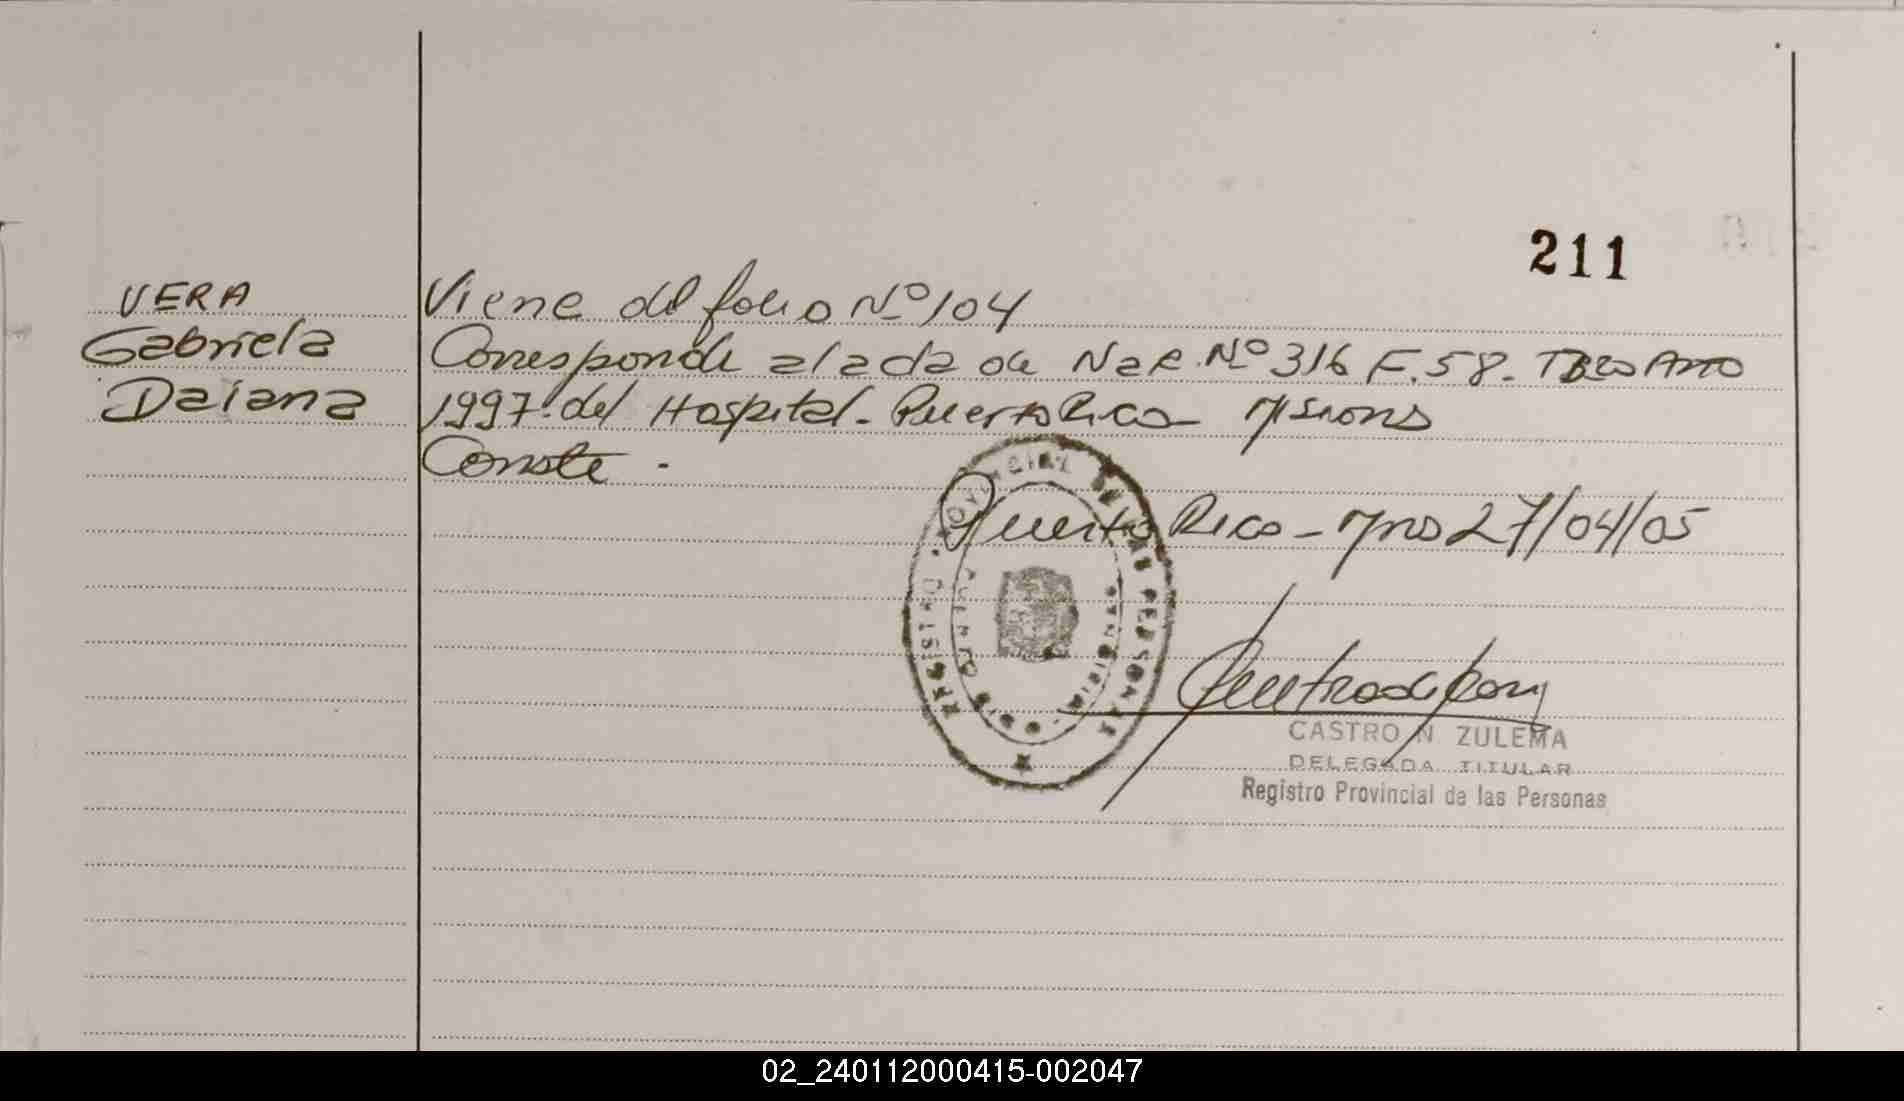 211
VERA
Gabriela
Daiana
Viene del folio Nº 104
Corresponde al acta de Nac. Nº 316 F. 58. Año
1997. del Hospital. Puerto Rico - Misiones
Conste.
Puerto Rico - Mnes 27/04/05
REGISTRO PROVINCIAL DE LAS PERSONAS
CASTRO N. ZULEMA
DELEGADA TITULAR
Registro Provincial de las Personas
02_240112000415-002047